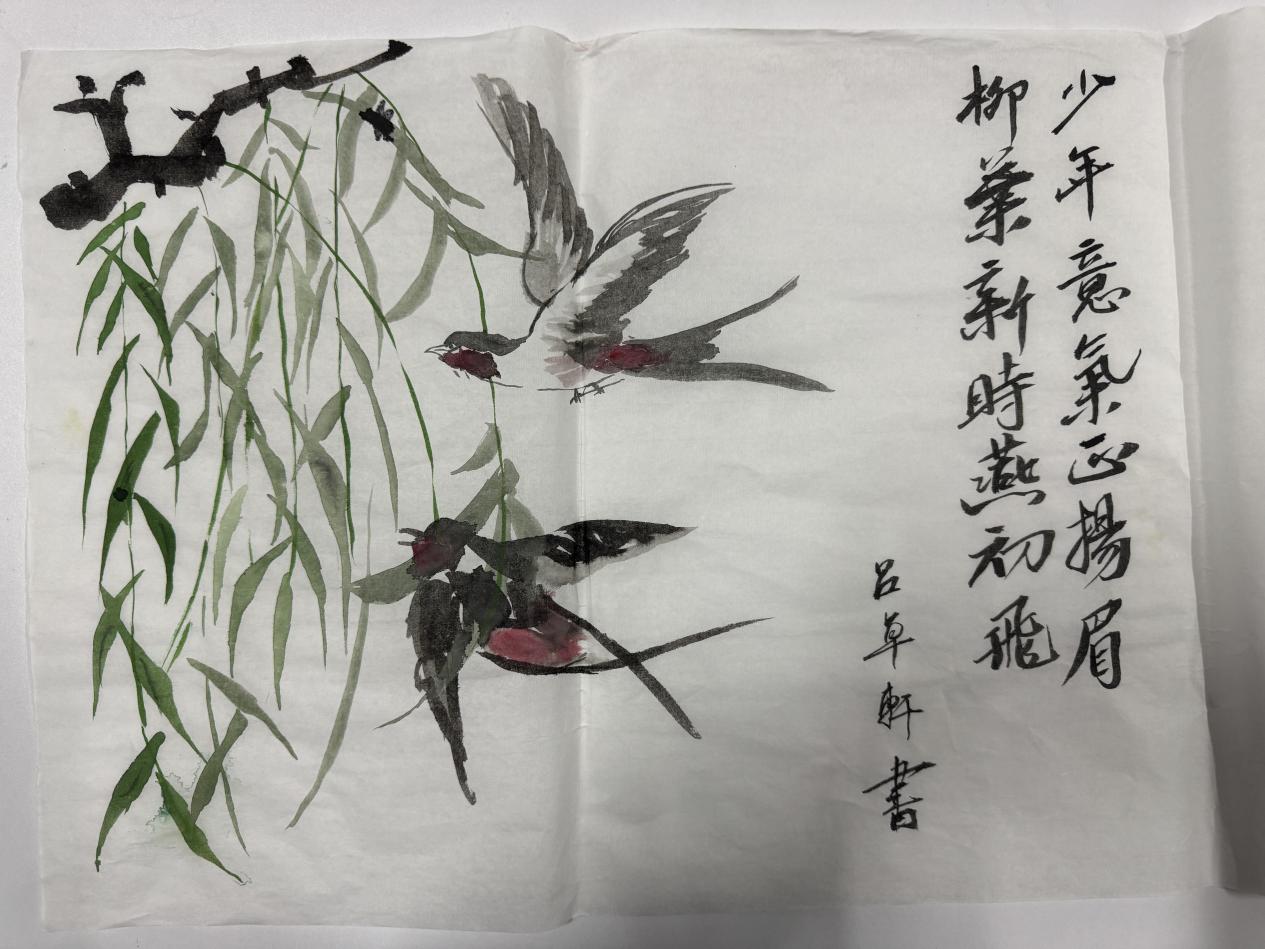 少年意氣正揚眉
柳葉新時燕初飛
呂草軒書